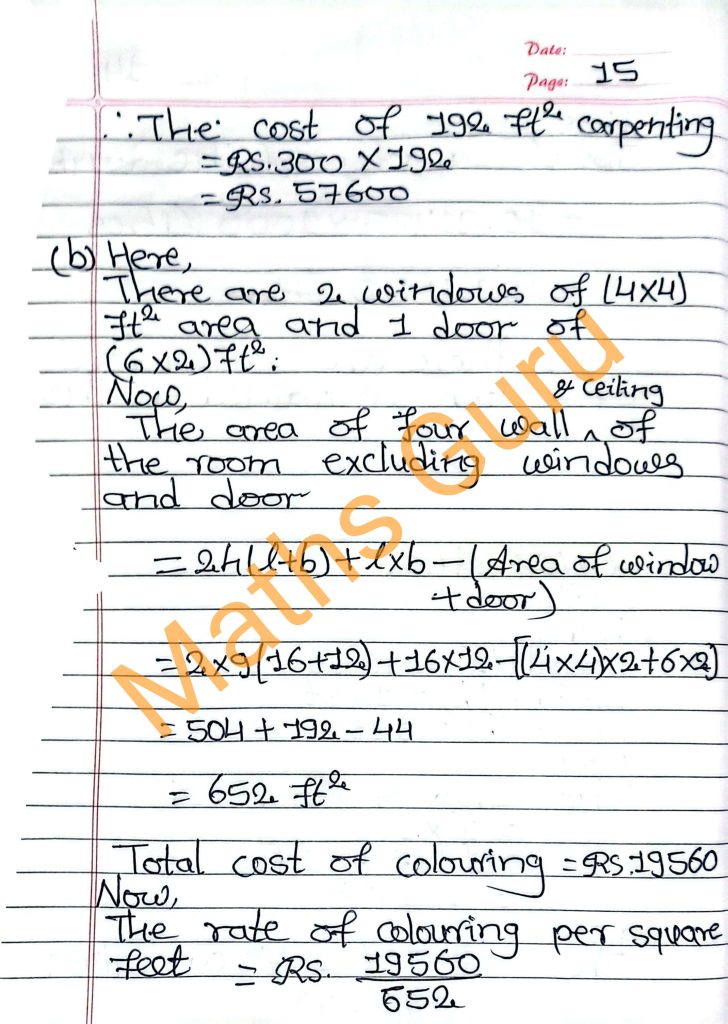 Date:
Page: 15
∴ The cost of 192 ft² carpenting
= Rs. 300 × 192
= Rs. 57600
(b) Here,
There are 2 windows of (4×4)
ft² area and 1 door of
(6×2) ft².
Now,
& ceiling
The area of four wall ^ of
the room excluding windows
and door
= 2h(l+b) + l×b – (Area of window
+ door)
= 2×9(16+12) + 16×12 – [(4×4)×2+6×2]
= 504 + 192 – 44
= 652 ft²
Total cost of colouring = Rs. 19560
Now,
The rate of colouring per square
feet = Rs. 19560/652
Maths Guru